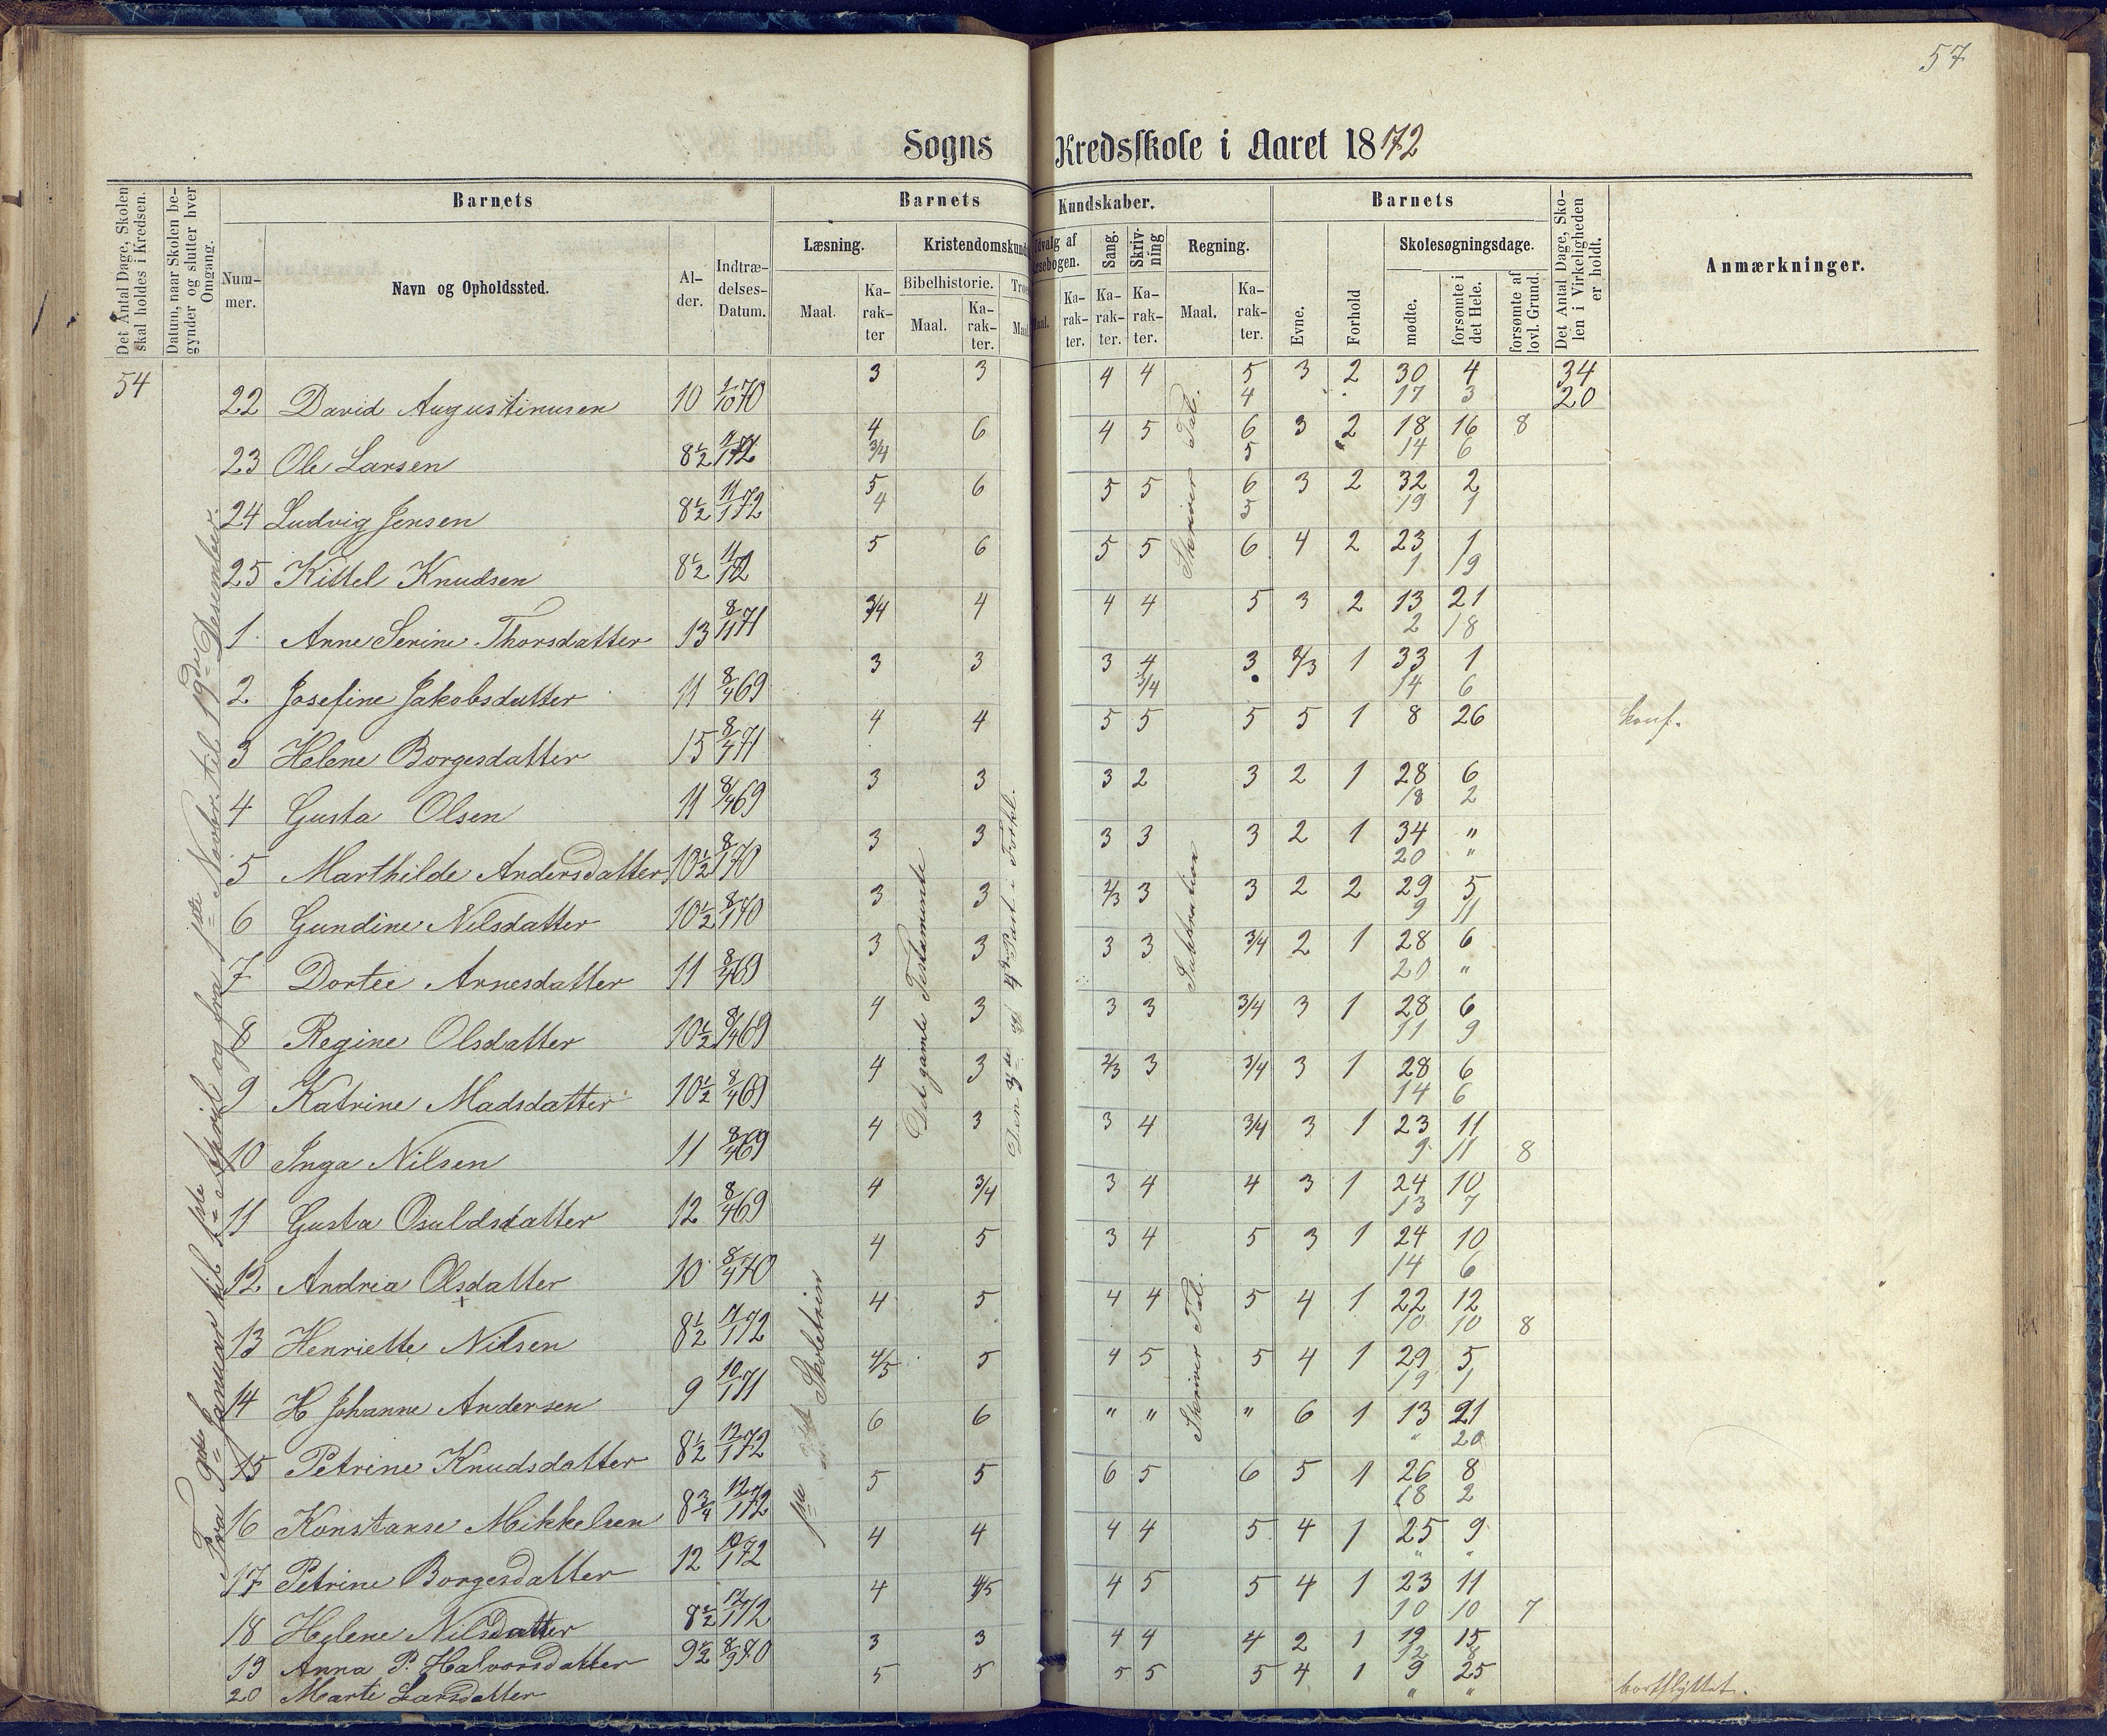 57
Sogns Kredsskole i Aaret 1872
Det Antal Dage, Skolen skal holdes i Kredsen.
Datum, naar Skolen be-gynder og slutter hver Omgang.
Barnets
Num-mer.
Navn og Opholdssted.
Al-der.
Indtræ-delses-Datum.
Barnets Kundskaber.
Læsning.
Maal.
Ka-rak-ter
Kristendomskund
Bibelhistorie.
Maal.
Ka-rak-ter.
Maal
dvalg af
sebogen.
Ka-rak-ter.
Sang.
Ka-rak-ter.
Skriv-ning
Ka-rak-ter.
Regning.
Maal.
Ka-rak-ter.
Barnets
Evne.
Forhold
Skolesøgningsdage.
mødte.
forsømte i det Hele.
forsømte af lovl. Grund.
Det Antal Dage, Sko-len i Virkeligheden er holdt.
Anmærkninger.
54
Fra 9de Januar til 1ste April og fra 1ste Novbr. til 19de Desember.
1ste Skoletrin
Det gamle Testamente
Den 3die og 4de Part i Forkl.
Skriver Tal.
Subtraktion
Skriver Tal.
22 David Augustinusen 10 1/10 70 3 3 4 4 5 3 2 30 4 34
4 17 3 20
23 Ole Larsen 8½ 11/1 72 4 6 4 5 6 3 2 18 16 8
3/4 5 14 6
24 Ludvig Jensen 8½ 11/1 72 5 6 5 5 6 3 2 32 2
4 5 19 1
25 Kittel Knudsen 8½ 11/1 72 5 6 5 5 6 4 2 23 1
1 19
1 Anne Serine Thorsdatter 13 8/11 71 3/4 4 4 4 5 3 2 13 21
2 18
2 Josefine Jakobsdatter 11 8/4 69 3 3 3 4 3 2/3 1 33 1
3/4 14 6
3 Helene Borgesdatter 15 8/4 71 4 4 5 5 5 5 1 8 26 konf.
4 Gusta Olsen 11 8/4 69 3 3 3 2 3 2 1 28 6
18 2
5 Marthilde Andersdatter 10½ 8/1 70 3 3 3 3 3 2 1 34 "
20 "
6 Gundine Nilsdatter 10½ 8/1 70 3 3 2/3 3 3 2 2 29 5
9 11
7 Dortee Arnesdatter 11 8/4 69 3 3 3 3 3/4 2 1 28 6
20 "
8 Regine Olsdatter 10½ 8/4 69 4 3 3 3 3/4 3 1 28 6
11 9
9 Katrine Madsdatter 10½ 8/4 69 4 3 2/3 3 3/4 3 1 28 6
14 6
10 Inga Nilsen 11 8/4 69 4 3 3 4 3/4 3 1 23 11
9 11 8
11 Gusta Osuldsdatter 12 8/4 69 4 3/4 3 4 4 3 1 24 10
13 7
12 Andrea Olsdatter 10 8/4 70 4 5 3 4 5 3 1 24 10
14 6
13 Henriette Nilsen 8½ 11/1 72 4 5 4 4 5 4 1 22 12
10 10 8
14 H Johanne Andersen 9 10/1 71 4/5 5 4 5 5 4 1 29 5
19 1
15 Petrine Knudsdatter 8½ 12/1 72 6 6 " " " 6 1 13 21
" 20
16 Konstanse Mikkelsen 8¾ 12/1 72 5 5 6 5 6 5 1 26 8
18 2
17 Petrine Borgesdatter 12 10/1 72 4 4 4 4 5 4 1 25 9
" "
18 Helene Nilsdatter 8½ 12/1 72 4 4/5 4 5 5 4 1 23 11
10 10 7
19 Anna P. Halvorsdatter 9½ 8/9 70 3 3 4 4 4 2 1 19 15
12 8
20 Marte Larsdatter 5 5 5 5 5 4 1 9 25 bortflyttet.
" "